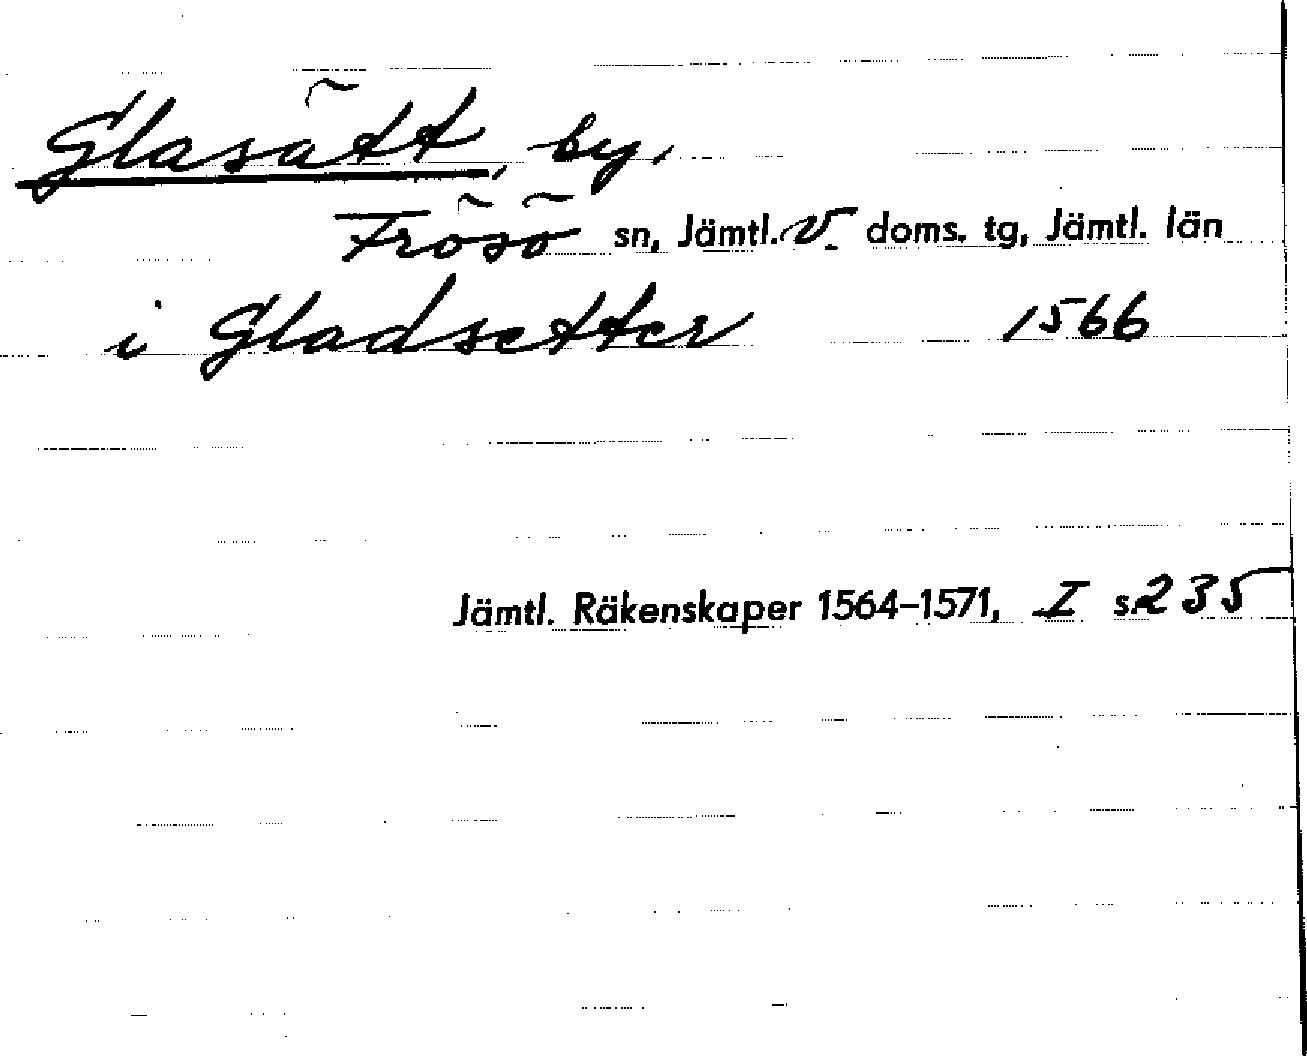 Glasätt, by,
Frösö sn, Jämtl. v. doms. tg, Jämtl. län
i Gladsetter 1566
Jämtl. Räkenskaper 1564-1571, I s. 235